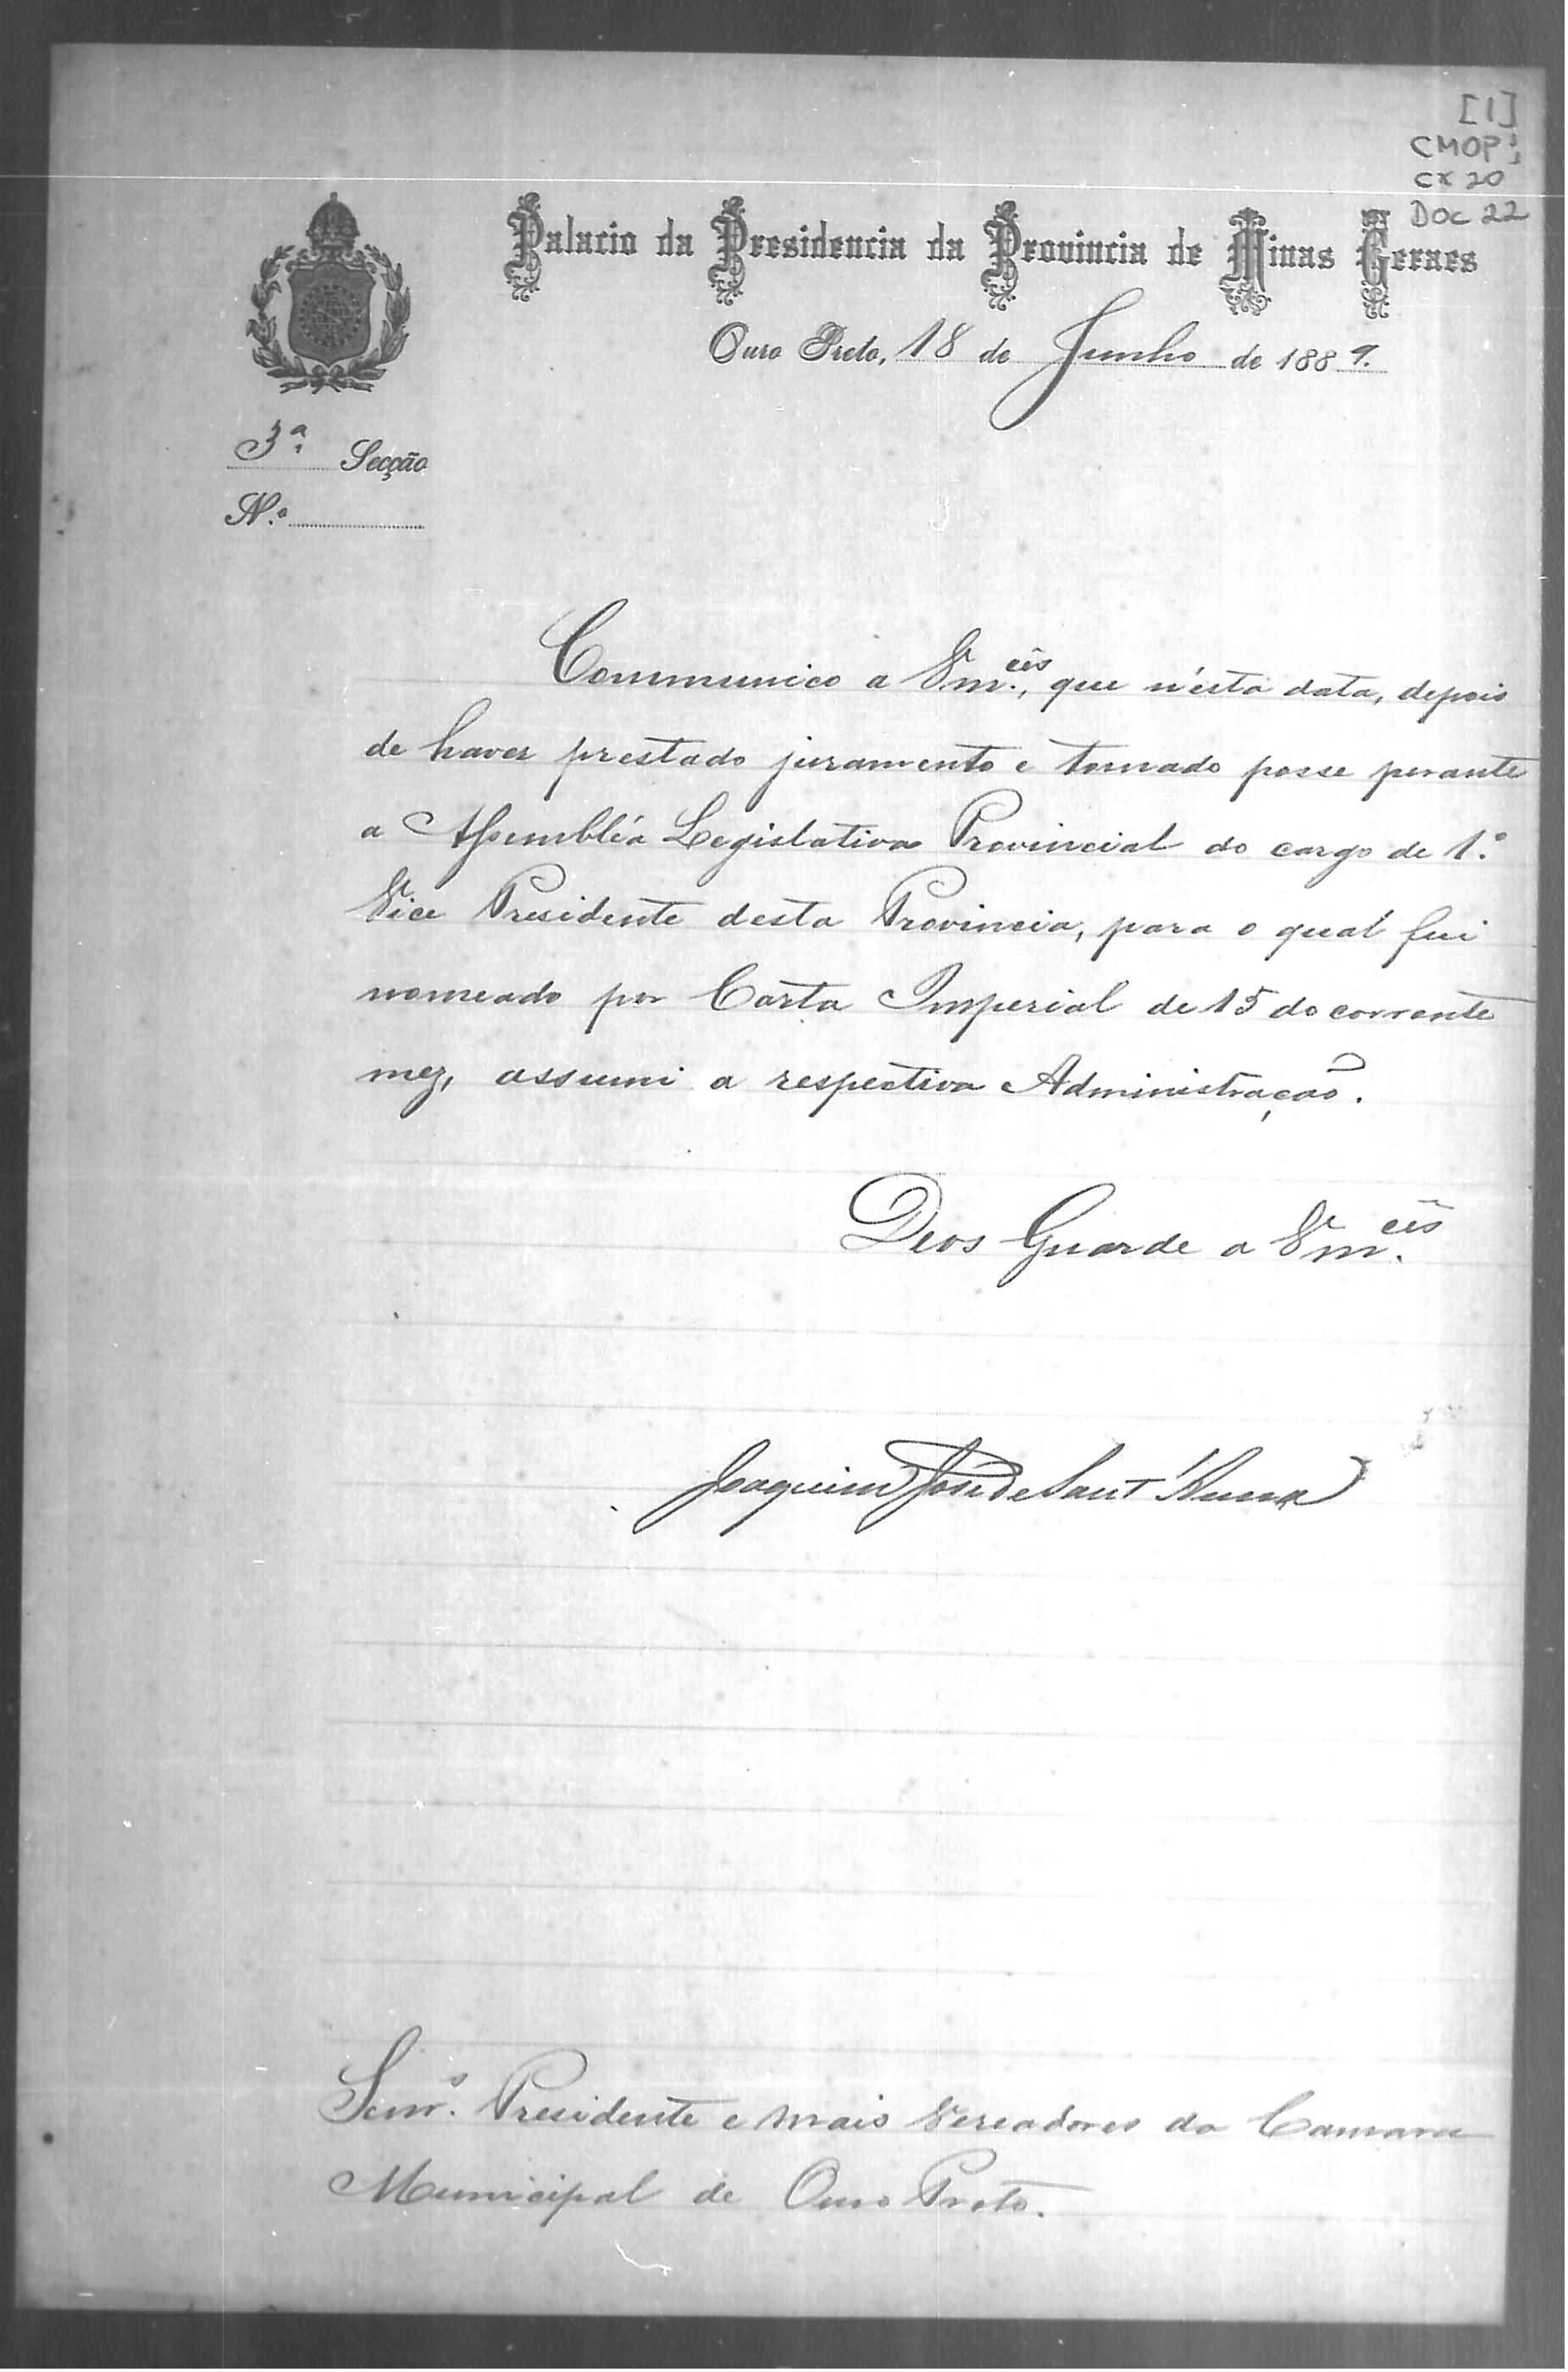 [1]
CMOP;
CX 20
DOC 22
Palacio da Presidencia da Provincia de Minas Geraes
Ouro Preto, 18 de Junho de 1889.
3ª Secção
N.º
Communico a Vm.cês, que n'esta data, depois
de haver prestado juramento e tomado posse perante
a Assembléa Legislativa Provincial do cargo de 1.º
Vice Presidente desta Provincia, para o qual fui
nomeado por Carta Imperial de 15 do corrente
mez, assumi a respectiva Administração.
Deos Guarde a Vm.cês
Joaquim José de Sant'Anna
Senr.s Presidente e mais Vereadores da Camara
Municipal de Ouro Preto.